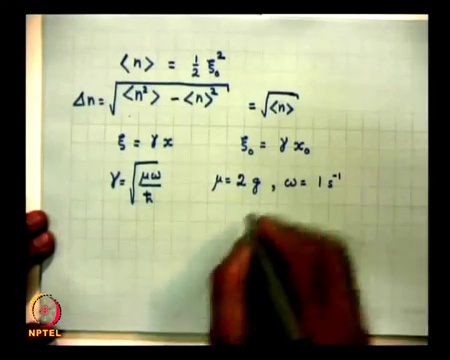 ⟨n⟩ = 1/2 ξ₀²
Δn = √(⟨n²⟩ − ⟨n⟩²) = √⟨n⟩
ξ = γ x ξ₀ = γ x₀
γ = √(μω/ℏ) μ = 2 g , ω = 1 s⁻¹
NPTEL